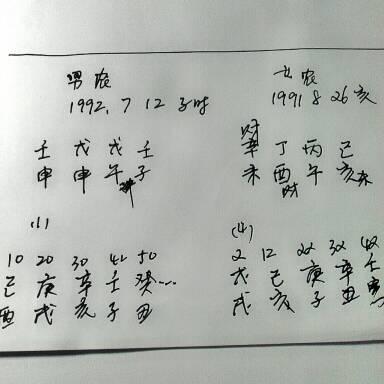 男农
1992.7 12 子时
壬 戊 戊 壬
申 申 午 子
(1)
10 20 30 40 50
己 庚 辛 壬 癸...
酉 戌 亥 子 丑
女农
1991 8 26 亥
财
辛 丁 丙 己
未 酉 午 亥
财
(4)
2 12 22 32 42
戊 己 庚 辛 壬
戌 亥 子 丑 寅